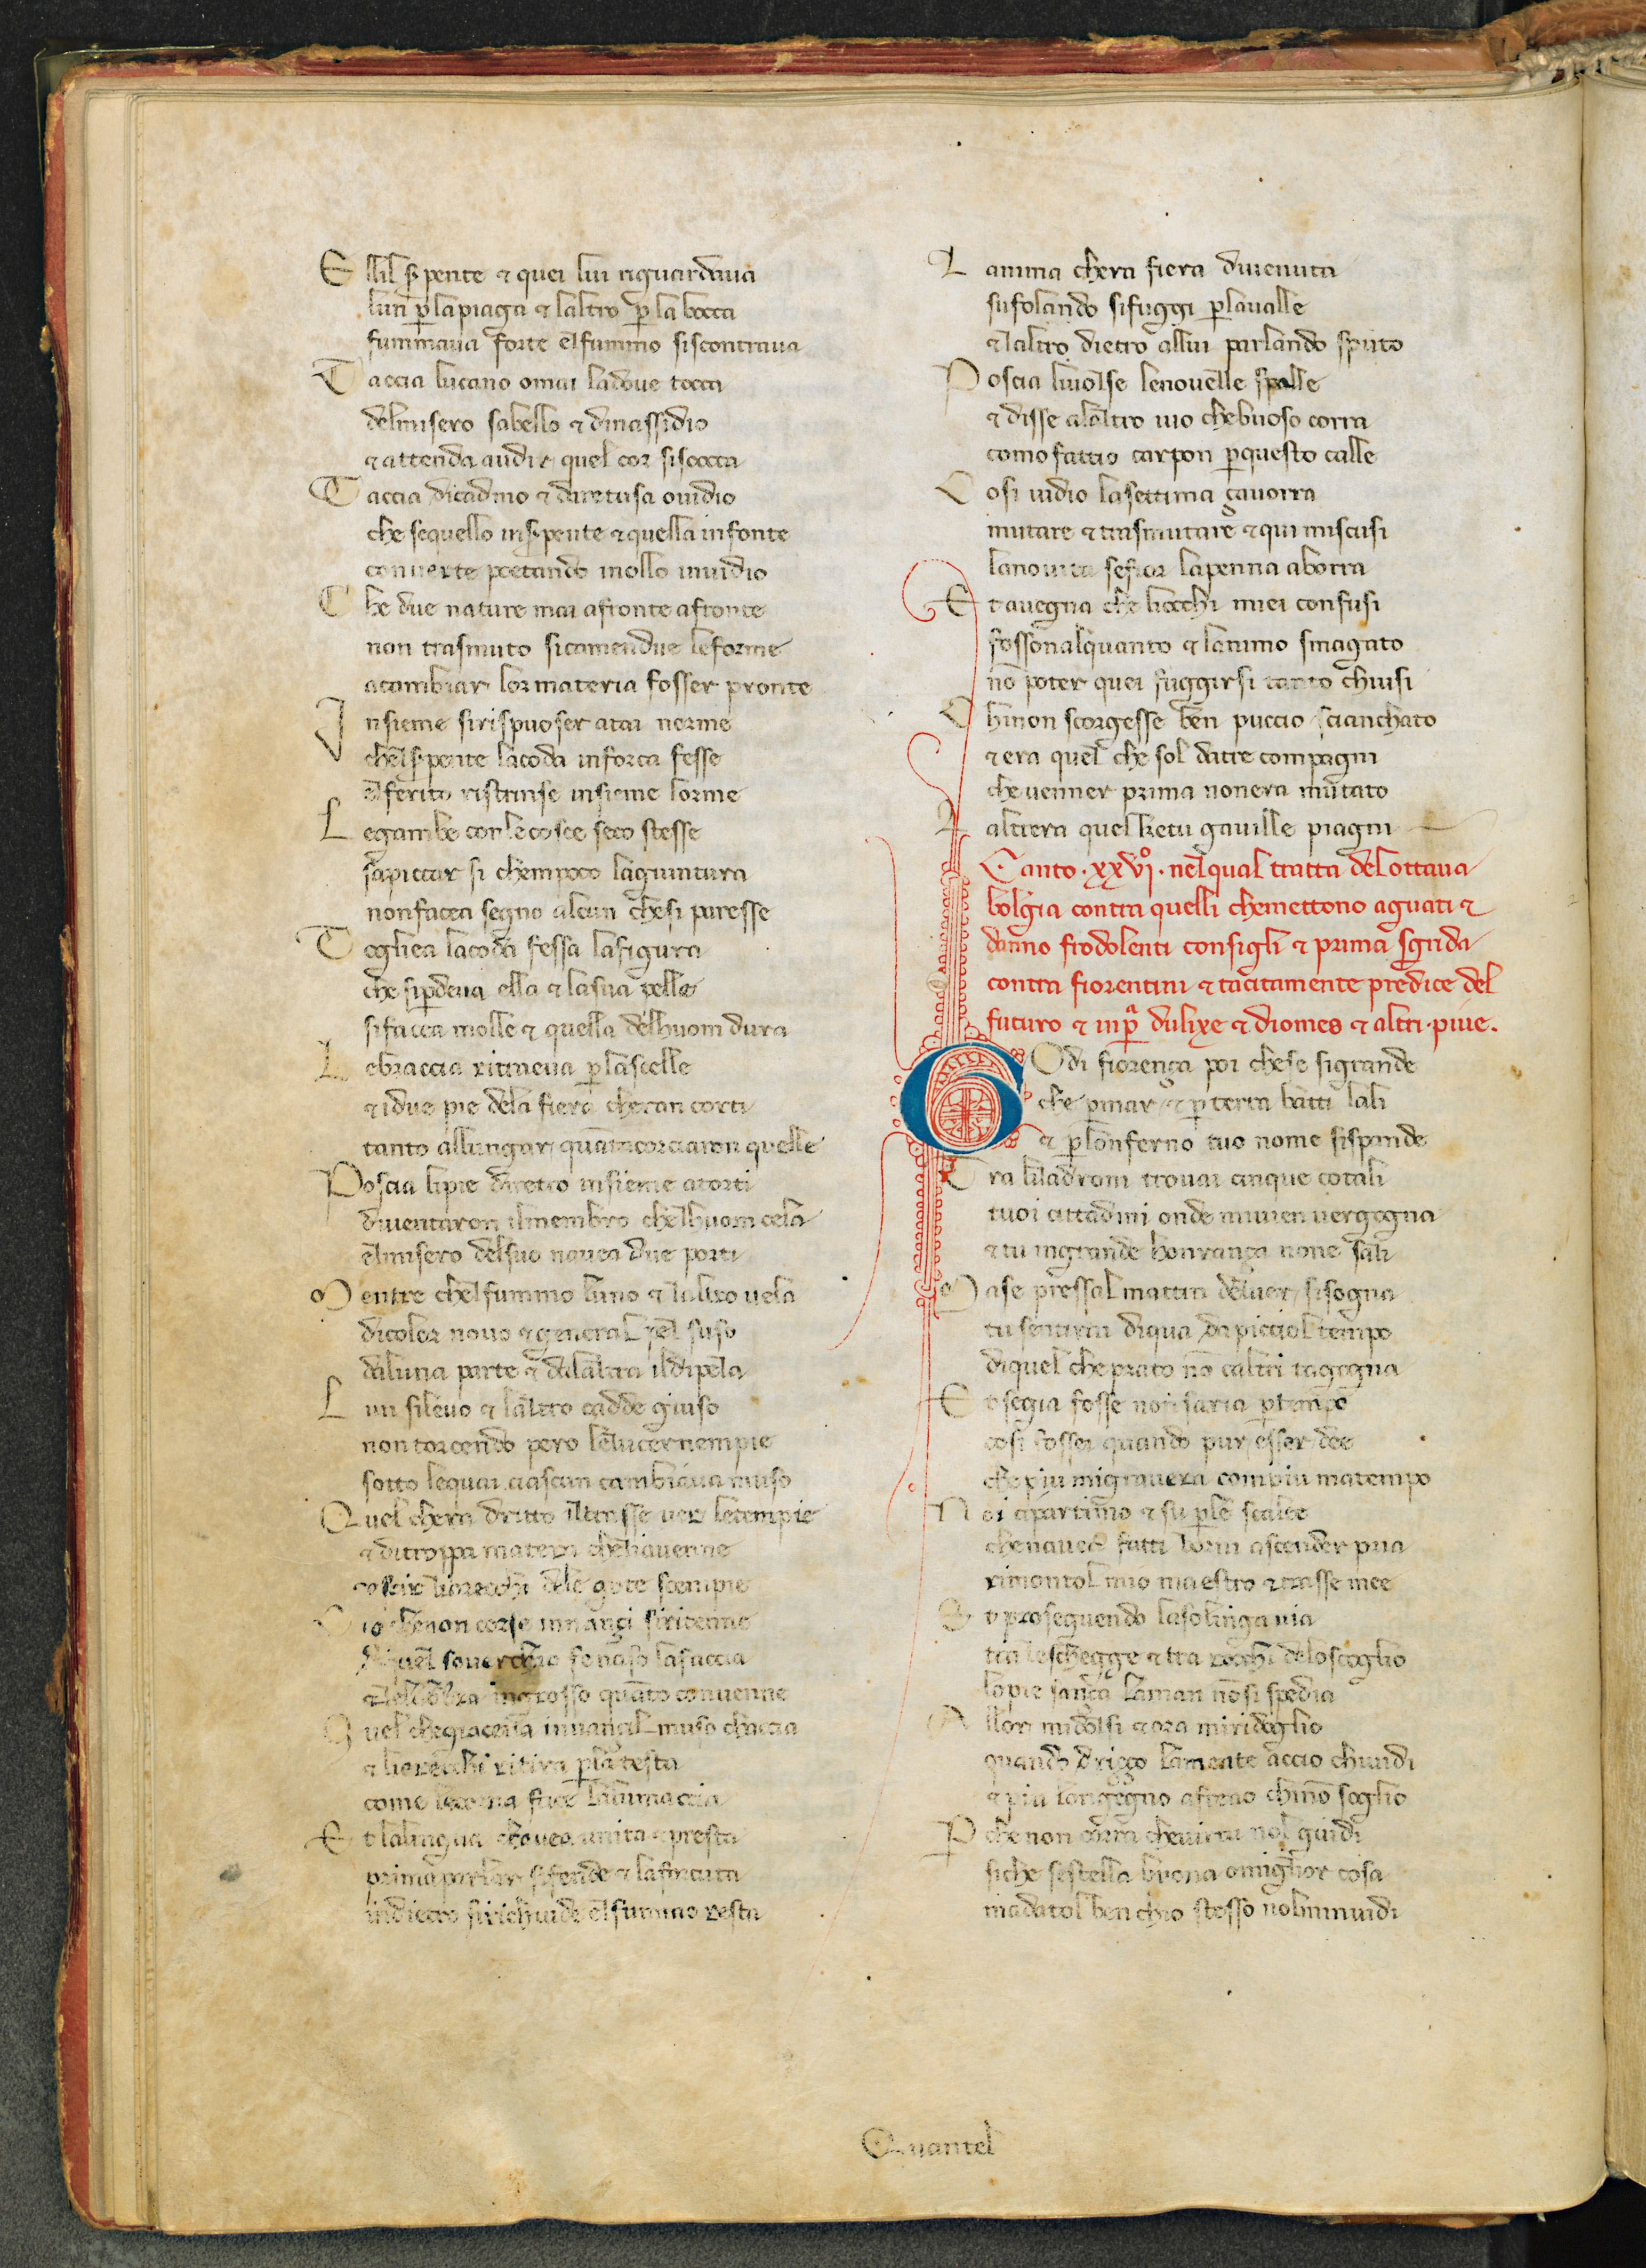 E llil sꝑpente ⁊ quei lui riguardaua
lun ꝑ lapiaga ⁊ laltro ꝑ la bocca
fummaua forte elfummo siscontraua
T accia lucano omai ladoue tocca
delmisero sabello ⁊ dinassidio
⁊ attenda audir quel cor siscocca
T accia dicadmo ⁊ daretusa ouidio
che sequello insꝑpente ⁊ quella infonte
conuerte poetando inollo inuidio
C he due nature mai afronte afronte
non trasmuto sicamendue leforme
acambiar lor materia fosser pronte
I nsieme sirispuoser atai norme
chelsꝑpente lacoda inforca fesse
elferito ristrinse insieme lorme
L egambe conlecosce seco stesse
sapiccar si chempoco lagiuntura
nonfacea segno alcun chesi paresse
T ogliea lacoda fessa lafigura
che siꝑdeua ella ⁊ lasua pelle
sifacea molle ⁊ quella delhuom dura
L ebraccia ritineua ꝑ lascelle
⁊ idue pie dela fiera cheran corti
tanto allungar quātacorciauon quelle
P oscia lipie diretro insieme atorti
diuentaron ilmembro chelhuom cela
elmisero delsuo nauea due porti
M entre chelfummo luno ⁊ laltro uela
dicolor nouo ⁊ general pel suso
daluna parte ⁊ dalaltra ildipela
L un sileuo ⁊ laltro cadde giuso
non torcendo pero lelucernempie
sotto lequai ciascun cambiaua muso
Q uel chera dritto iltrasse uer letempie
⁊ ditroppa matera chelauenne
uscir liorecchi dele gote scempie
C io chenon corse innanzi siritenne
diquel souerchio fe naso lafaccia
⁊ lelabra ingrosso quāto conuenne
Q uel chegiacea innanzil muso chaccia
⁊ liorecchi ritira ꝑ la testa
come lecorna face lalumaccia
E t lalingua chauea unita ⁊ presta
prima parlar sifende ⁊ laforcuta
indietro sirichiude elfummo resta
L anima chera fiera diuenuta
sufolando sifuggi ꝑ laualle
⁊ laltro dietro allui parlando sputo
P oscia liuolse lenouelle spalle
⁊ disse alaltro uio chebuoso corra
comofattio carpon ꝑquesto calle
C osi uidio lasettima zauorra
mutare ⁊ trasmutare ⁊ qui miscusi
lanouita sefior lapenna aborra
E t auegna che liocchi miei confusi
fossonalquanto ⁊ lanimo smagato
nō poter quei fuggirsi tanto chiusi
C hinon scorgesse ben puccio sciancbato
⁊ era quel che sol datre compagni
che uenner prima nonera mutato
L altrera quel ketu gauille piagni
Canto · xxvjº · nelqual tratta delottaua
bolgia contra quelli chemettono aguati ⁊
danno frodolenti consigli ⁊ prima sgrida
contra fiorentini ⁊ tacitamente predice del
futuro ⁊ inꝑ dulixe ⁊ diomes ⁊ altri · piue .
G Odi fiorenza poi chese sigrande
che ꝑmar ⁊ ꝑ terra batti lali
⁊ ꝑ lonferno tuo nome sispande
T ra liladroni trouai cinque cotali
tuoi cittadini onde miuien uergogna
⁊ tu ingrande honranza none sali
M ase pressal mattin deluer sisogna
tu sentirai diqua dapicciol tempo
diquel che prato nō caltri tagogna
E t segia fosse non saria ꝑtempo
cosi fosser quando pur esser dee
che piu migrauera compiu matempo
N oi cipartimo ⁊ su ꝑ le scalee
chenauea fatti iborni ascender pria
rimontol mio maestro ⁊ trasse mee
E t proseguendo lasolinga uia
tra leschegge ⁊ tra rocchi deloscoglio
lopie sanza laman nōsi spedia
A llor midolsi ⁊ ora miridoglio
quando drizzo lamente accio chiuidi
⁊ piu longegno afreno chinō soglio
P che non corra cheuirtu nol guidi
siche sestella bona omiglior cosa
madatol ben chio stesso nolmiinuidi
Quantel